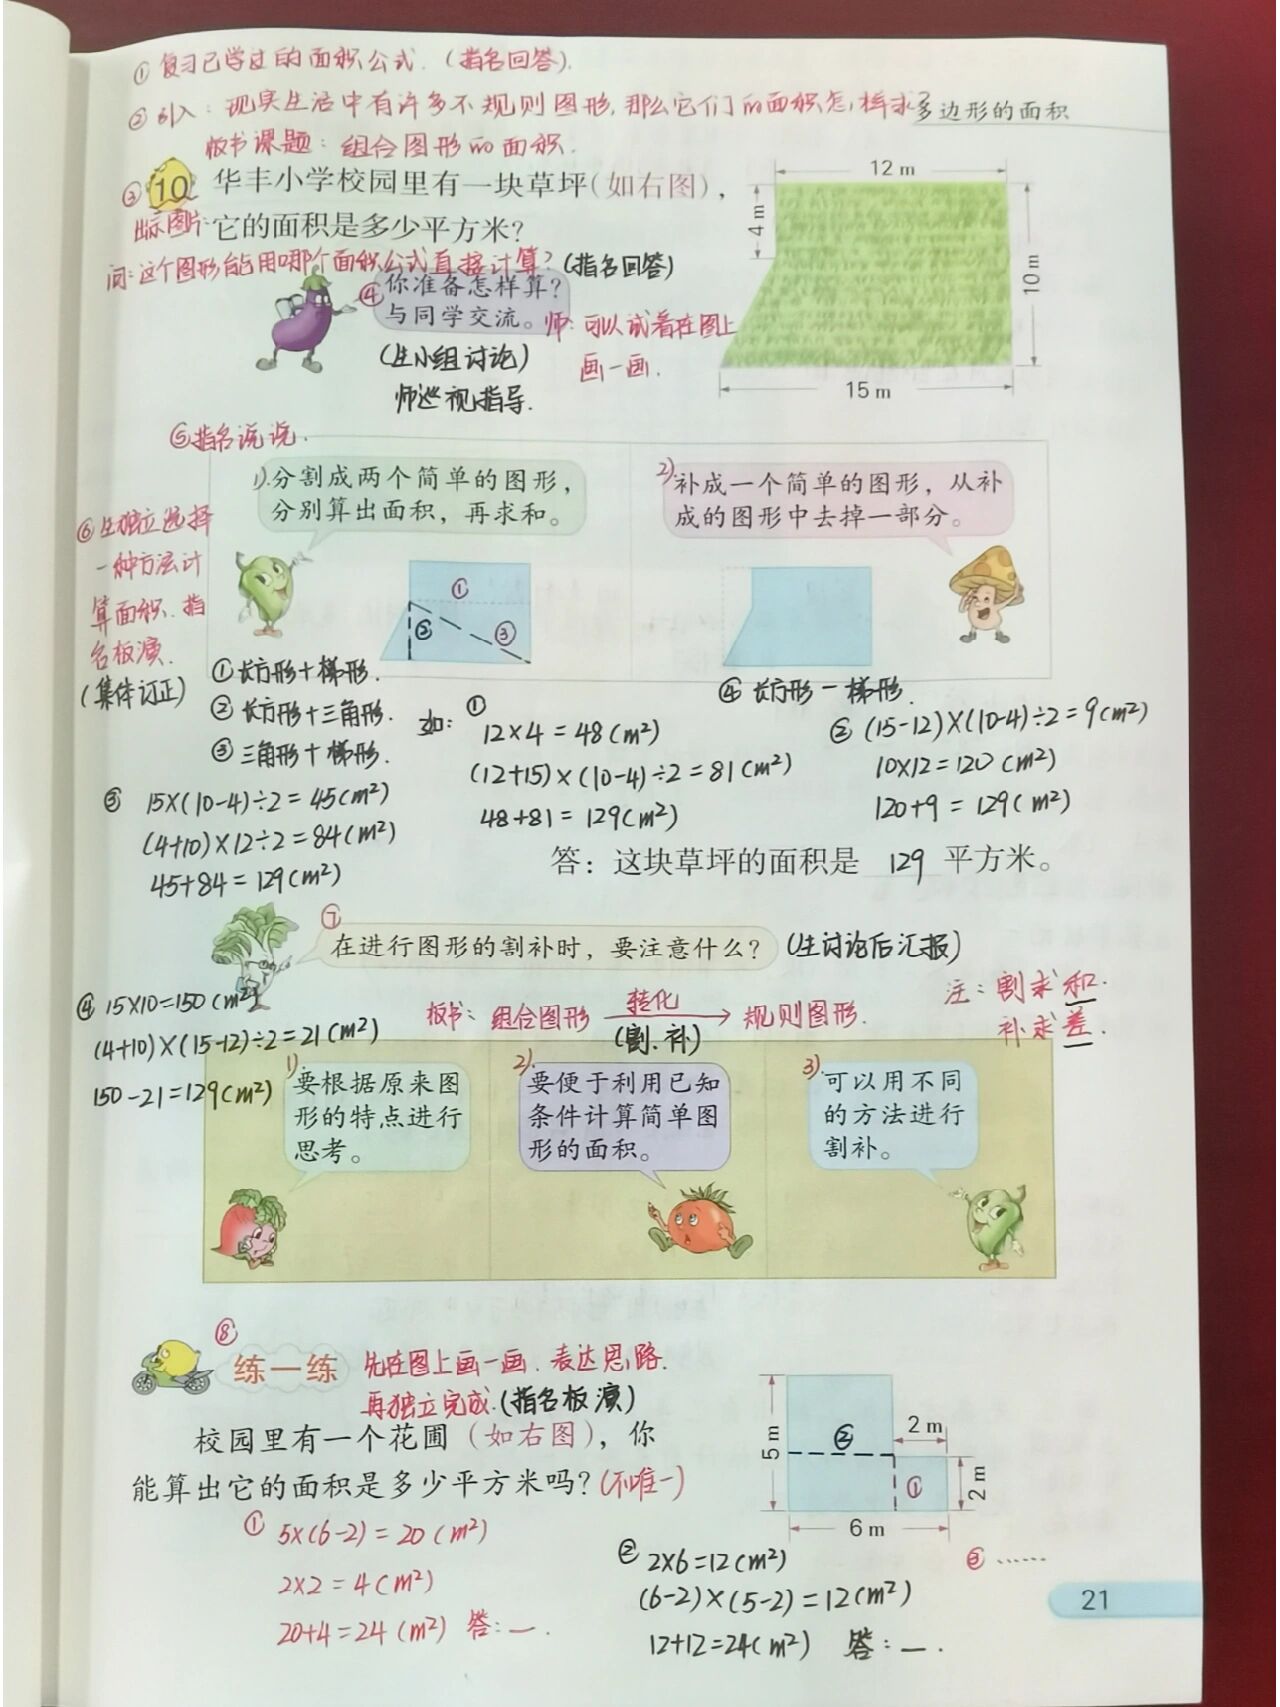 ①复习已学过的面积公式.(指名回答).
②引入:现实生活中有许多不规则图形,那么它们的面积怎样求?
多边形的面积
板书课题:组合图形的面积.
③ 10 华丰小学校园里有一块草坪(如右图),
出示图片: 它的面积是多少平方米?
问:这个图形能用哪个面积公式直接计算?(指名回答)
④你准备怎样算?
与同学交流。
师:可以试着在图上
画一画.
(生小组讨论)
师巡视指导.
12 m
4 m
10 m
15 m
⑤指名说说.
1).分割成两个简单的图形,
分别算出面积,再求和。
2)补成一个简单的图形,从补
成的图形中去掉一部分。
⑥生独立选择
一种方法计
算面积.指
名板演.
(集体订正)
①
②
③
①长方形+梯形.
②长方形+三角形.
③三角形+梯形.
④长方形-梯形.
如:①
12×4=48(m²)
(12+15)×(10-4)÷2=81(m²)
48+81=129(m²)
② (15-12)×(10-4)÷2=9(m²)
10×12=120(m²)
120+9=129(m²)
③ 15×(10-4)÷2=45(m²)
(4+10)×12÷2=84(m²)
45+84=129(m²)
答:这块草坪的面积是 129 平方米。
⑦
在进行图形的割补时,要注意什么?(生讨论后汇报)
④ 15×10=150(m²)
(4+10)×(15-12)÷2=21(m²)
150-21=129(m²)
板书:组合图形 转化 规则图形.
(割.补)
注:割求和.
补求差.
1).要根据原来图
形的特点进行
思考。
2).要便于利用已知
条件计算简单图
形的面积。
3).可以用不同
的方法进行
割补。
⑧
练一练 先在图上画一画.表达思路.
再独立完成.(指名板演)
校园里有一个花圃(如右图),你
能算出它的面积是多少平方米吗?(不唯一)
5 m
②
2 m
①
2 m
6 m
① 5×(6-2)=20(m²)
2×2=4(m²)
20+4=24(m²) 答:—.
② 2×6=12(m²)
(6-2)×(5-2)=12(m²)
12+12=24(m²) 答:—.
③ ……
21